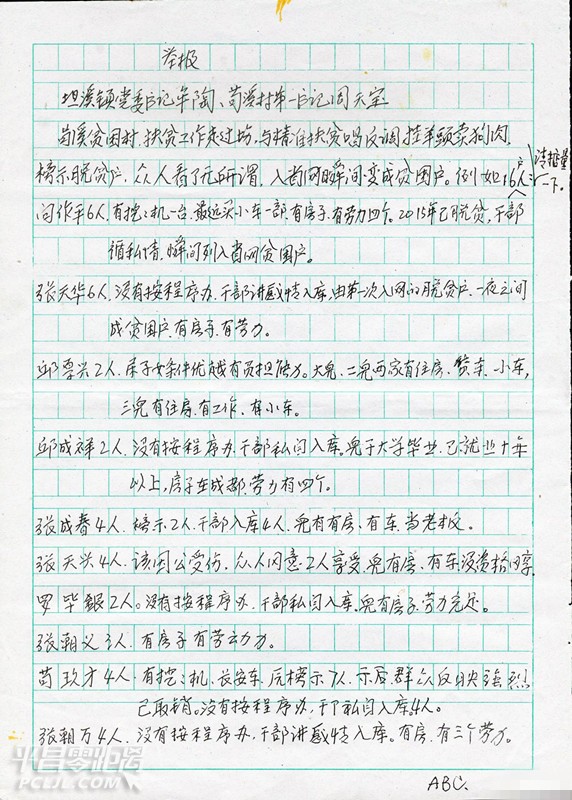 举报
坦溪镇党委书记牟陶、苟溪村第一书记周天宝
苟溪贫困村,扶贫工作走过场,与精准扶贫唱反调,挂羊头卖狗肉,
榜示脱贫户,众人看了无所谓,入省网瞬间变成贫困户。例如16户
人
请掂量
一下。
闫作平6人,有挖机一台,最近买小车一部,有房子,有劳力四个。2015年已脱贫,干部
循私情,瞬间列入省网贫困户。
张天华6人,没有按程序办,干部讲感情入库,由第一次入网的脱贫户,一夜之间
成贫困户,有房子,有劳力。
邱 兴2人,其子女条件优越有负担能力。大儿、二儿两家有住房、货车、小车,
三儿有住房,有工作、有小车。
邱成祥2人,没有按程序办,干部私闯入库。儿子大学毕业,已就业十年
以上,房子在成都,劳力有四个。
张成春4人,榜示2人,干部入库4人,儿有有房、有车,当老板。
张天兴4人,该因公受伤,众人同意2人享受,儿有房、有车没资格同享。
罗毕银2人。没有按程序办,干部私闯入库,儿有房子,劳力充足。
张朝义3人,有房子有劳动力。
苟玖才4人,有挖机、长安车,后榜示1人,示后群众反映强烈
已取销。没有按程序办,干下私闯入库4人。
张朝万4人,没有按程序办,干部讲感情入库。有房,有三个劳力。
ABC.
平昌零距离
PCLJL.COM